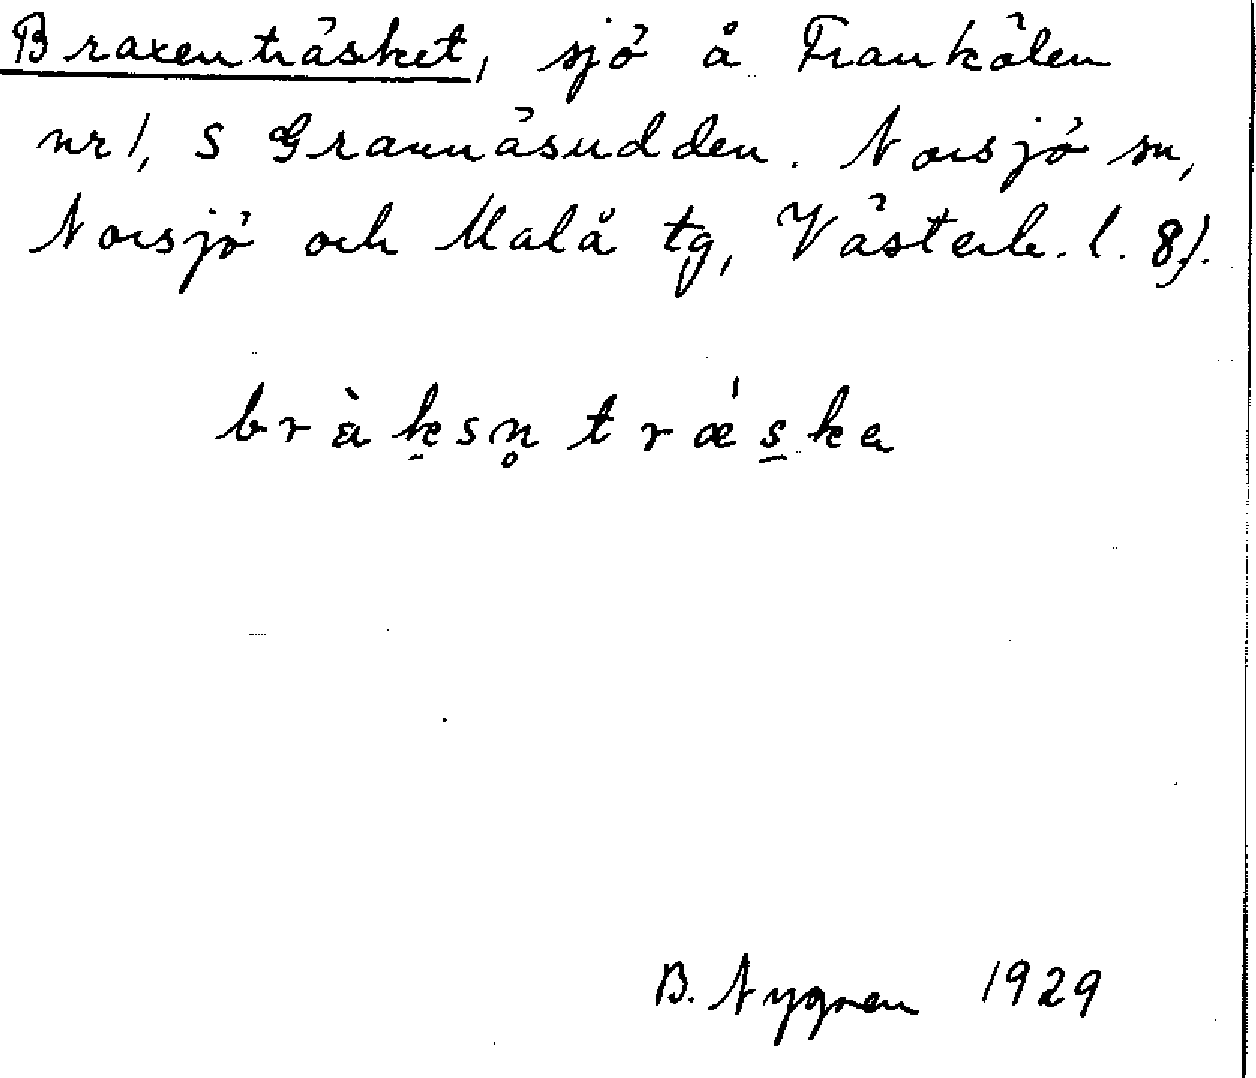 Braxenträsket, sjö å Trankälen
nr 1, S Grannäsudden. Norsjö sn,
Norsjö och Malå tg, Västerb. l. 8).
bràksn̥ trǽska
B. Nygren 1929